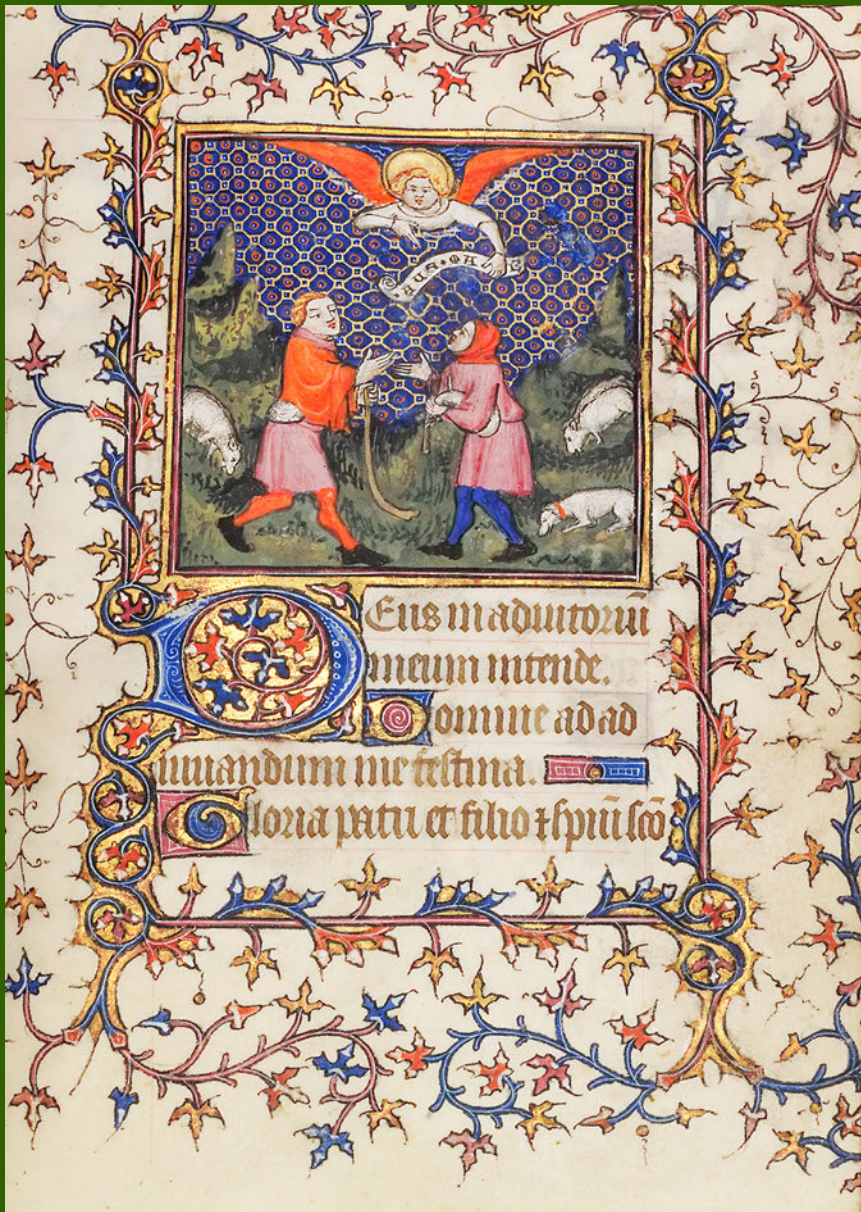 Deus in adiutoriū
meum intende.
Domine ad ad
iuuandum me festina.
Gloria patri et filio ⁊ spiūi scō